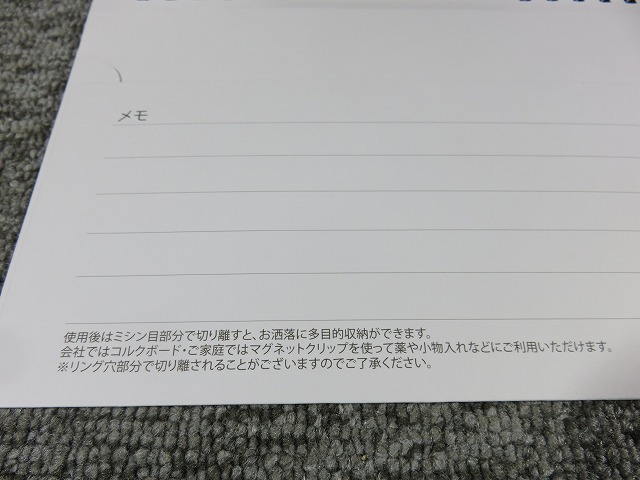 メモ
使用後はミシン目部分で切り離すと、お洒落に多目的収納ができます。
会社ではコルクボード・ご家庭ではマグネットクリップを使って薬や小物入れなどにご利用いただけます。
※リング穴部分で切り離されることがございますのでご了承ください。